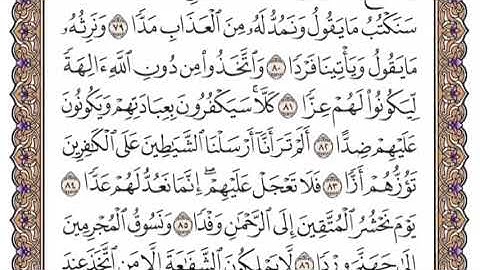 سَنَكْتُبُ مَا يَقُولُ وَنَمُدُّ لَهُۥ مِنَ ٱلْعَذَابِ مَدًّا ٧٩ وَنَرِثُهُۥ
مَا يَقُولُ وَيَأْتِينَا فَرْدًا ٨٠ وَٱتَّخَذُوا۟ مِن دُونِ ٱللَّهِ ءَالِهَةً
لِّيَكُونُوا۟ لَهُمْ عِزًّا ٨١ كَلَّا سَيَكْفُرُونَ بِعِبَادَتِهِمْ وَيَكُونُونَ
عَلَيْهِمْ ضِدًّا ٨٢ أَلَمْ تَرَ أَنَّآ أَرْسَلْنَا ٱلشَّيَٰطِينَ عَلَى ٱلْكَٰفِرِينَ
تَؤُزُّهُمْ أَزًّا ٨٣ فَلَا تَعْجَلْ عَلَيْهِمْ ۖ إِنَّمَا نَعُدُّ لَهُمْ عَدًّا ٨٤
يَوْمَ نَحْشُرُ ٱلْمُتَّقِينَ إِلَى ٱلرَّحْمَٰنِ وَفْدًا ٨٥ وَنَسُوقُ ٱلْمُجْرِمِينَ
إِلَىٰ جَهَنَّمَ وِرْدًا ٨٦ لَّا يَمْلِكُونَ ٱلشَّفَٰعَةَ إِلَّا مَنِ ٱتَّخَذَ عِندَ